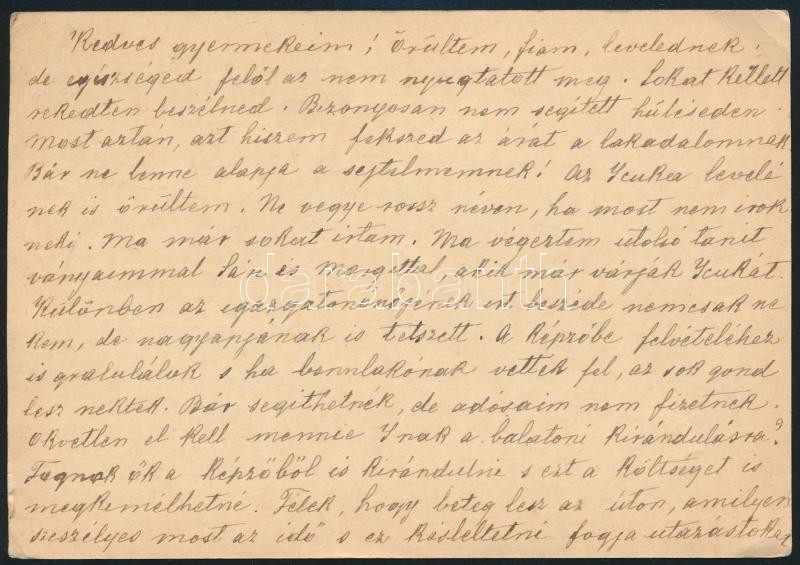 Kedves gyermekeim! Örültem, fiam, levelednek,
de egészséged felől az nem nyugtatott meg. Sokat kellett
rekedten beszélned. Bizonyosan nem segített hűléseden.
Most aztán, azt hiszem fekszed az árát a lakadalomnak.
Bár ne lenne alapja a sejtelmemnek! Az Icuka levelé
nek is örültem. Ne vegye rossz néven, ha most nem irok
neki. Ma már sokat irtam. Ma végeztem utolsó tanit
ványaimmal Sári és Margittal akik már várják Icukát.
Különben az igazgatónőjének irt beszéde nemcsak ne
kem, de nagyanjának is tetszett. A képzőbe felvételéhez
is gratulálok s ha bennlakónak vették fel, az sok gond
lesz nektek. Bár segithetnék, de adósaim nem fizetnek.
Okvetlen el kell mennie Inak a balatoni kirándulásra?
Fognak ők a képzőből is kirándulni s ezt a költséget is
megkimélhetné. Félek, hogy beteg lesz az úton, amilyen
szeszélyes most az idő s ez késleltetni fogja utazástokat
darabanth